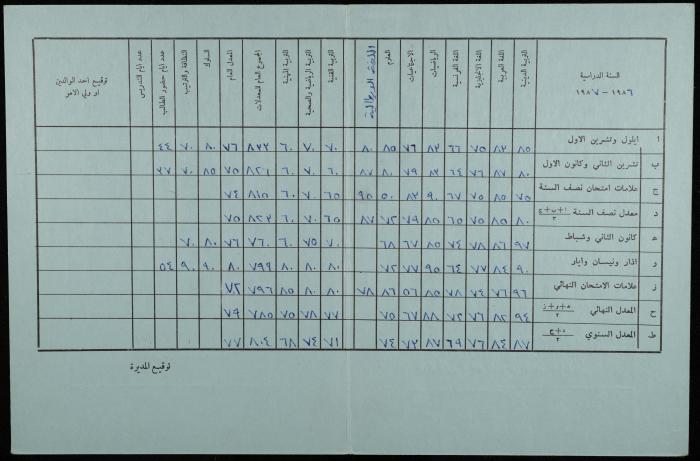 السنة الدراسية ١٩٨٦ - ١٩٨٧ | التربية الدينية | اللغة العربية | اللغة الانجليزية | اللغة الفرنسية | الرياضيات | الاجتماعيات | العلوم | التربية الفنية | التربية الرياضية والصحية | التربية المهنية | المجموع العام للمعدلات | المعدل العام | السلوك | النظافة والترتيب | عدد ايام حضور الطالب | عدد ايام التدريس | توقيع احد الوالدين او ولي الامر
ا ايلول وتشرين الاول ٨٥ ٨٢ ٧٥ ٦٦ ٨٢ ٧٦ ٨٥ ٨٠ ٧٠ ٧٠ ٦٠ ٨٢٢ ٧٦ ٨٠ ٧٠ ٤٤
ب تشرين الثاني وكانون الاول ٨٠ ٨٧ ٧٦ ٦٤ ٨٢ ٧٩ ٨٠ ٨٧ ٦٠ ٧٠ ٦٠ ٨٢١ ٧٥ ٨٥ ٧٠ ٢٧
ج علامات امتحان نصف السنة ٧٥ ٨٥ ٧٥ ٦٧ ٩٠ ٨٢ ٥٠ ٩٥ ٦٥ ٧٠ ٦٠ ٨١٥ ٧٤
د معدل نصف السنة ا+ب+ج/٣ ٨٠ ٨٥ ٧٥ ٦٥ ٨٥ ٧٩ ٧٢ ٨٧ ٦٥ ٧٠ ٦٠ ٨٢٢ ٧٥
ه كانون الثاني وشباط ٩٧ ٨٦ ٧٨ ٧٤ ٨٥ ٦٧ ٦٨ ٧٠ ٧٥ ٦٠ ٧٦٠ ٧٦ ٨٠ ٧٠
و اذار ونيسان وايار ٩٠ ٨٤ ٧٧ ٦٤ ٩٥ ٧٧ ٧٢ ٨٠ ٨٠ ٨٠ ٧٩٩ ٨٠ ٩٠ ٩٠ ٥٤
ز علامات الامتحان النهائي ٩٦ ٧٦ ٧٤ ٧٨ ٨٥ ٥٦ ٨٦ ٧٨ ٨٠ ٨٠ ٨٥ ٧٩٦ ٧٢
ح المعدل النهائي ه+و+ز/٣ ٩٤ ٨٢ ٧٦ ٧٢ ٨٨ ٦٧ ٧٥ ٧٧ ٧٨ ٧٥ ٧٨٥ ٧٩
ط المعدل السنوي د+ح/٢ ٨٧ ٨٤ ٧٦ ٦٩ ٨٧ ٧٣ ٧٤ ٧١ ٧٤ ٦٨ ٨٠٤ ٧٧
توقيع المديرة